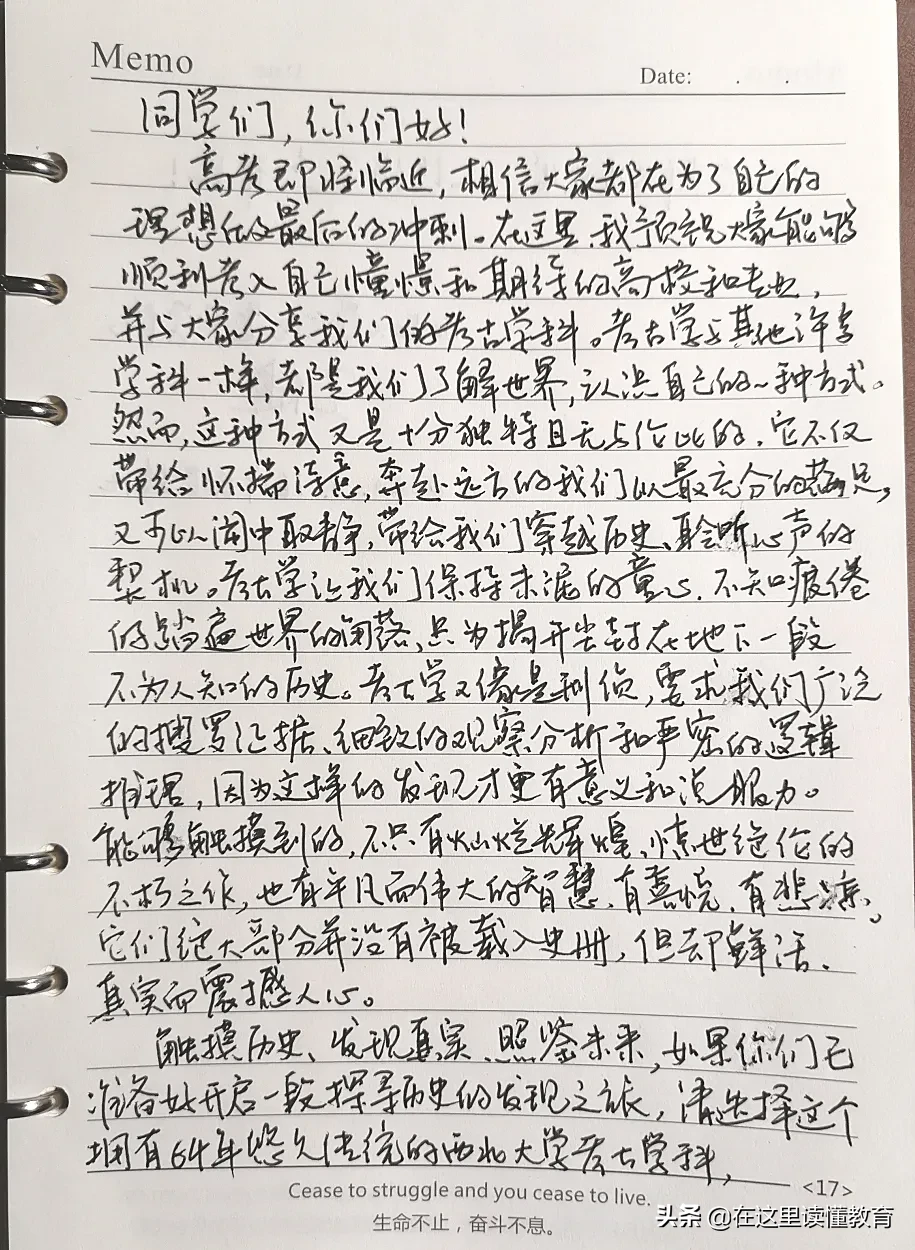 Memo
Date: . .
同学们,你们好!
高考即将临近,相信大家都在为了自己的
理想做最后的冲刺。在这里,我预祝大家能够
顺利考入自己憧憬和期待的高校和专业,
并与大家分享我们的考古学科。考古学与其他许多
学科一样,都是我们了解世界,认识自己的一种方式。
然而,这种方式又是十分独特且无与伦比的,它不仅
带给怀揣诗意,奔赴远方的我们以最充分的满足,
又可以闹中取静,带给我们穿越历史、聆听心声的
契机。考古学让我们保持未泯的童心,不知疲倦
的踏遍世界的角落、只为揭开尘封在地下一段
不为人知的历史。考古学又像是刑侦,要求我们广泛
的搜罗证据、细致的观察分析和严密的逻辑
推理,因为这样的发现才更有意义和说服力。
能够触摸到的,不只有灿烂辉煌、惊世绝伦的
不朽之作,也有平凡而伟大的智慧,有喜悦,有悲凉。
它们绝大部分并没有被载入史册,但却鲜活、
真实而震撼人心。
触摸历史、发现真实、照鉴未来,如果你们已
准备好开启一段探寻历史的发现之旅,请选择这个
拥有64年悠久传统的西北大学考古学科,
Cease to struggle and you cease to live. <17>
生命不止,奋斗不息。
头条 @在这里读懂教育